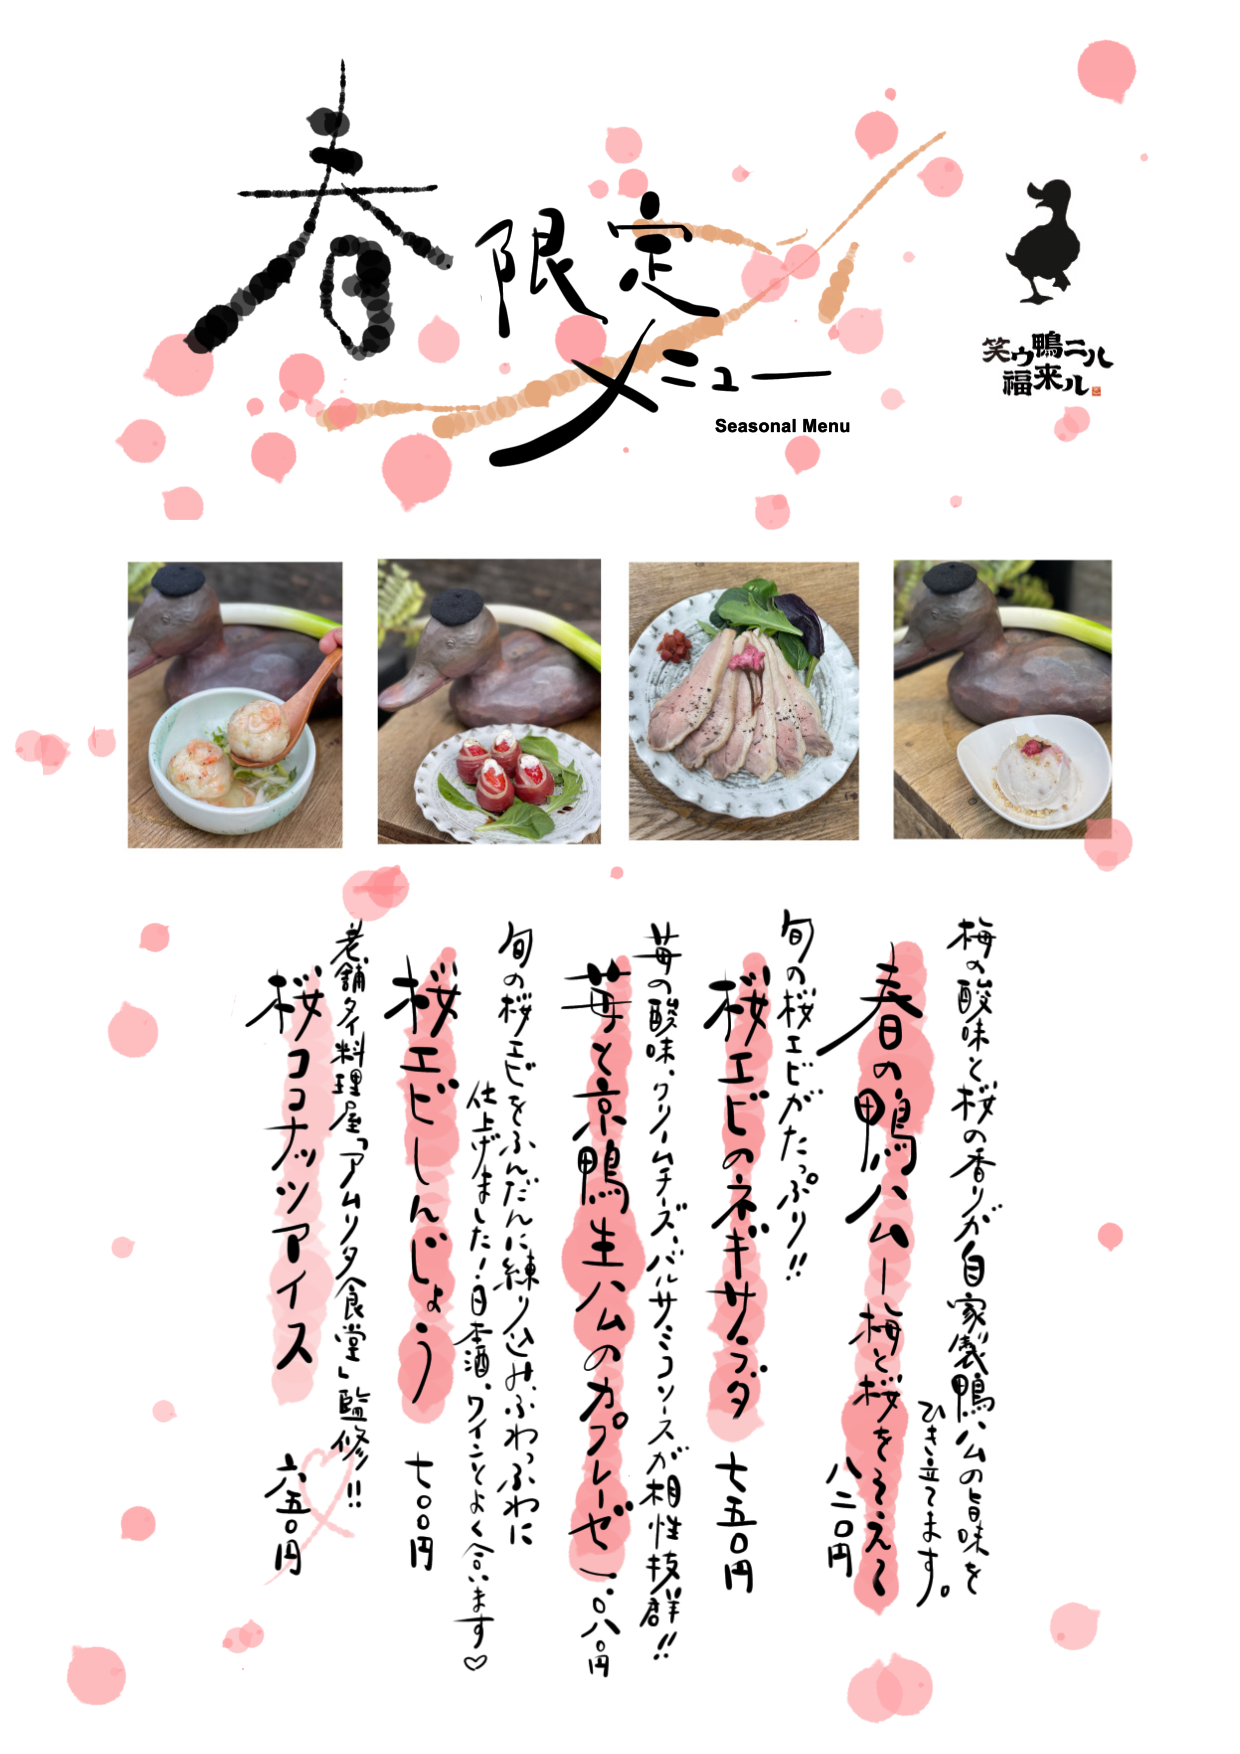 春限定
メニュー
Seasonal Menu
笑ウ鴨ニハ
福来ル
梅の酸味と桜の香りが自家製鴨ハムの旨味を
ひき立てます。
春の鴨ハム 梅と桜をそえて
八二〇円
旬の桜エビがたっぷり!!
桜エビのネギサラダ 七五〇円
苺の酸味、クリームチーズ、バルサミコソースが相性抜群!!
苺と京鴨生ハムのカプレーゼ 一〇八〇円
旬の桜エビをふんだんに練り込み、ふわっふわに
仕上げました!日本酒、ワインとよく合います♡
桜エビしんじょう 七〇〇円
老舗タイ料理屋「アムリタ食堂」監修!!
桜ココナッツアイス 六五〇円